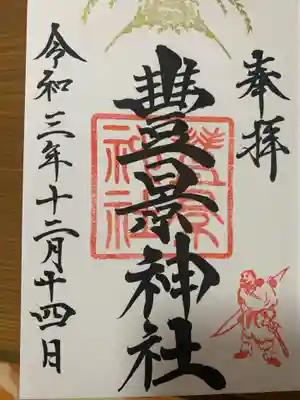 奉拝
豊景神社
令和三年十二月十四日
豊景神社